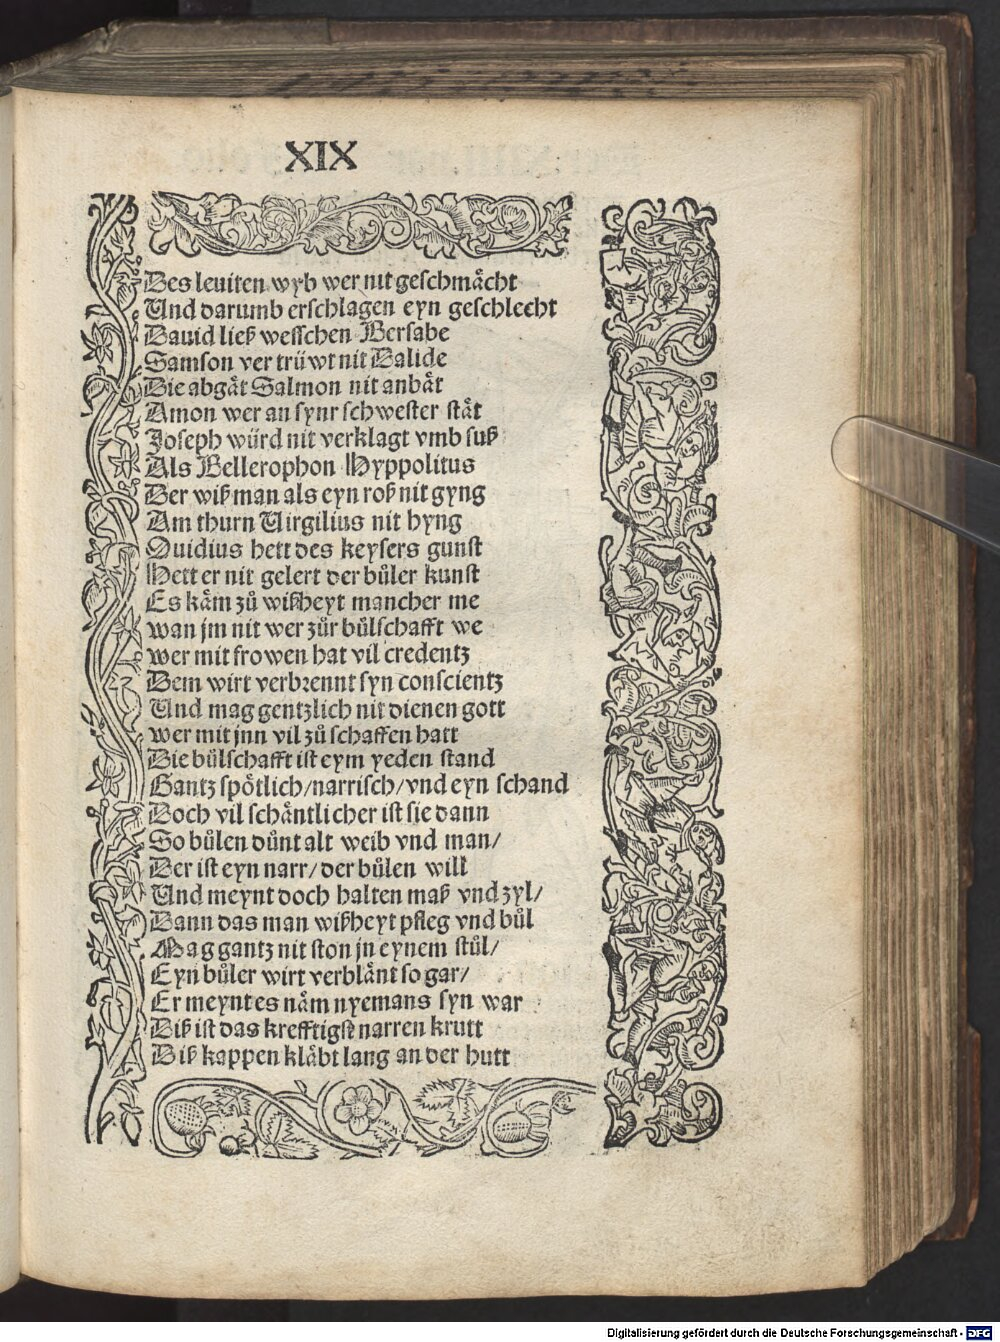 XIX
Des leuiten wyb wer nit geschmåcht
Und darumb erschlagen eyn geschlecht
Dauid ließ wesschen Bersabe
Samson ver trüwt nit Dalide
Die abgåt Salmon nit anbåt
Amon wer an synr schwester ståt
Joseph würd nit verklagt vmb suß
Als Bellerophon Hyppolitus
Der wiß man als eyn roß nit gyng
Am thurn Uirgilius nit hyng
Ouidius hett des keysers gunst
Hett er nit gelert der bůler kunst
Es kåm zů wißheyt mancher me
wan jm nit wer zůr bůlschafft we
wer mit frowen hat vil credentz
Dem wirt verbrennt syn conscientz
Und mag gentzlich nit dienen gott
wer mit jnn vil zů schaffen hatt
Die bůlschafft ist eym yeden stand
Gantz spôtlich/narrisch/vnd eyn schand
Doch vil schåntlicher ist sie dann
So bůlen důnt alt weib vnd man/
Der ist eyn narr/der bůlen will
Und meynt doch halten maß vnd zyl/
Dann das man wißheyt pfleg vnd bůl
Mag gantz nit ston jn eynem stůl/
Eyn bůler wirt verblånt so gar/
Er meynt es nåm nyemans syn war
Diß ist das krefftigst narren krutt
Diß kappen klåbt lang an der hutt
Digitalisierung gefördert durch die Deutsche Forschungsgemeinschaft - DFG